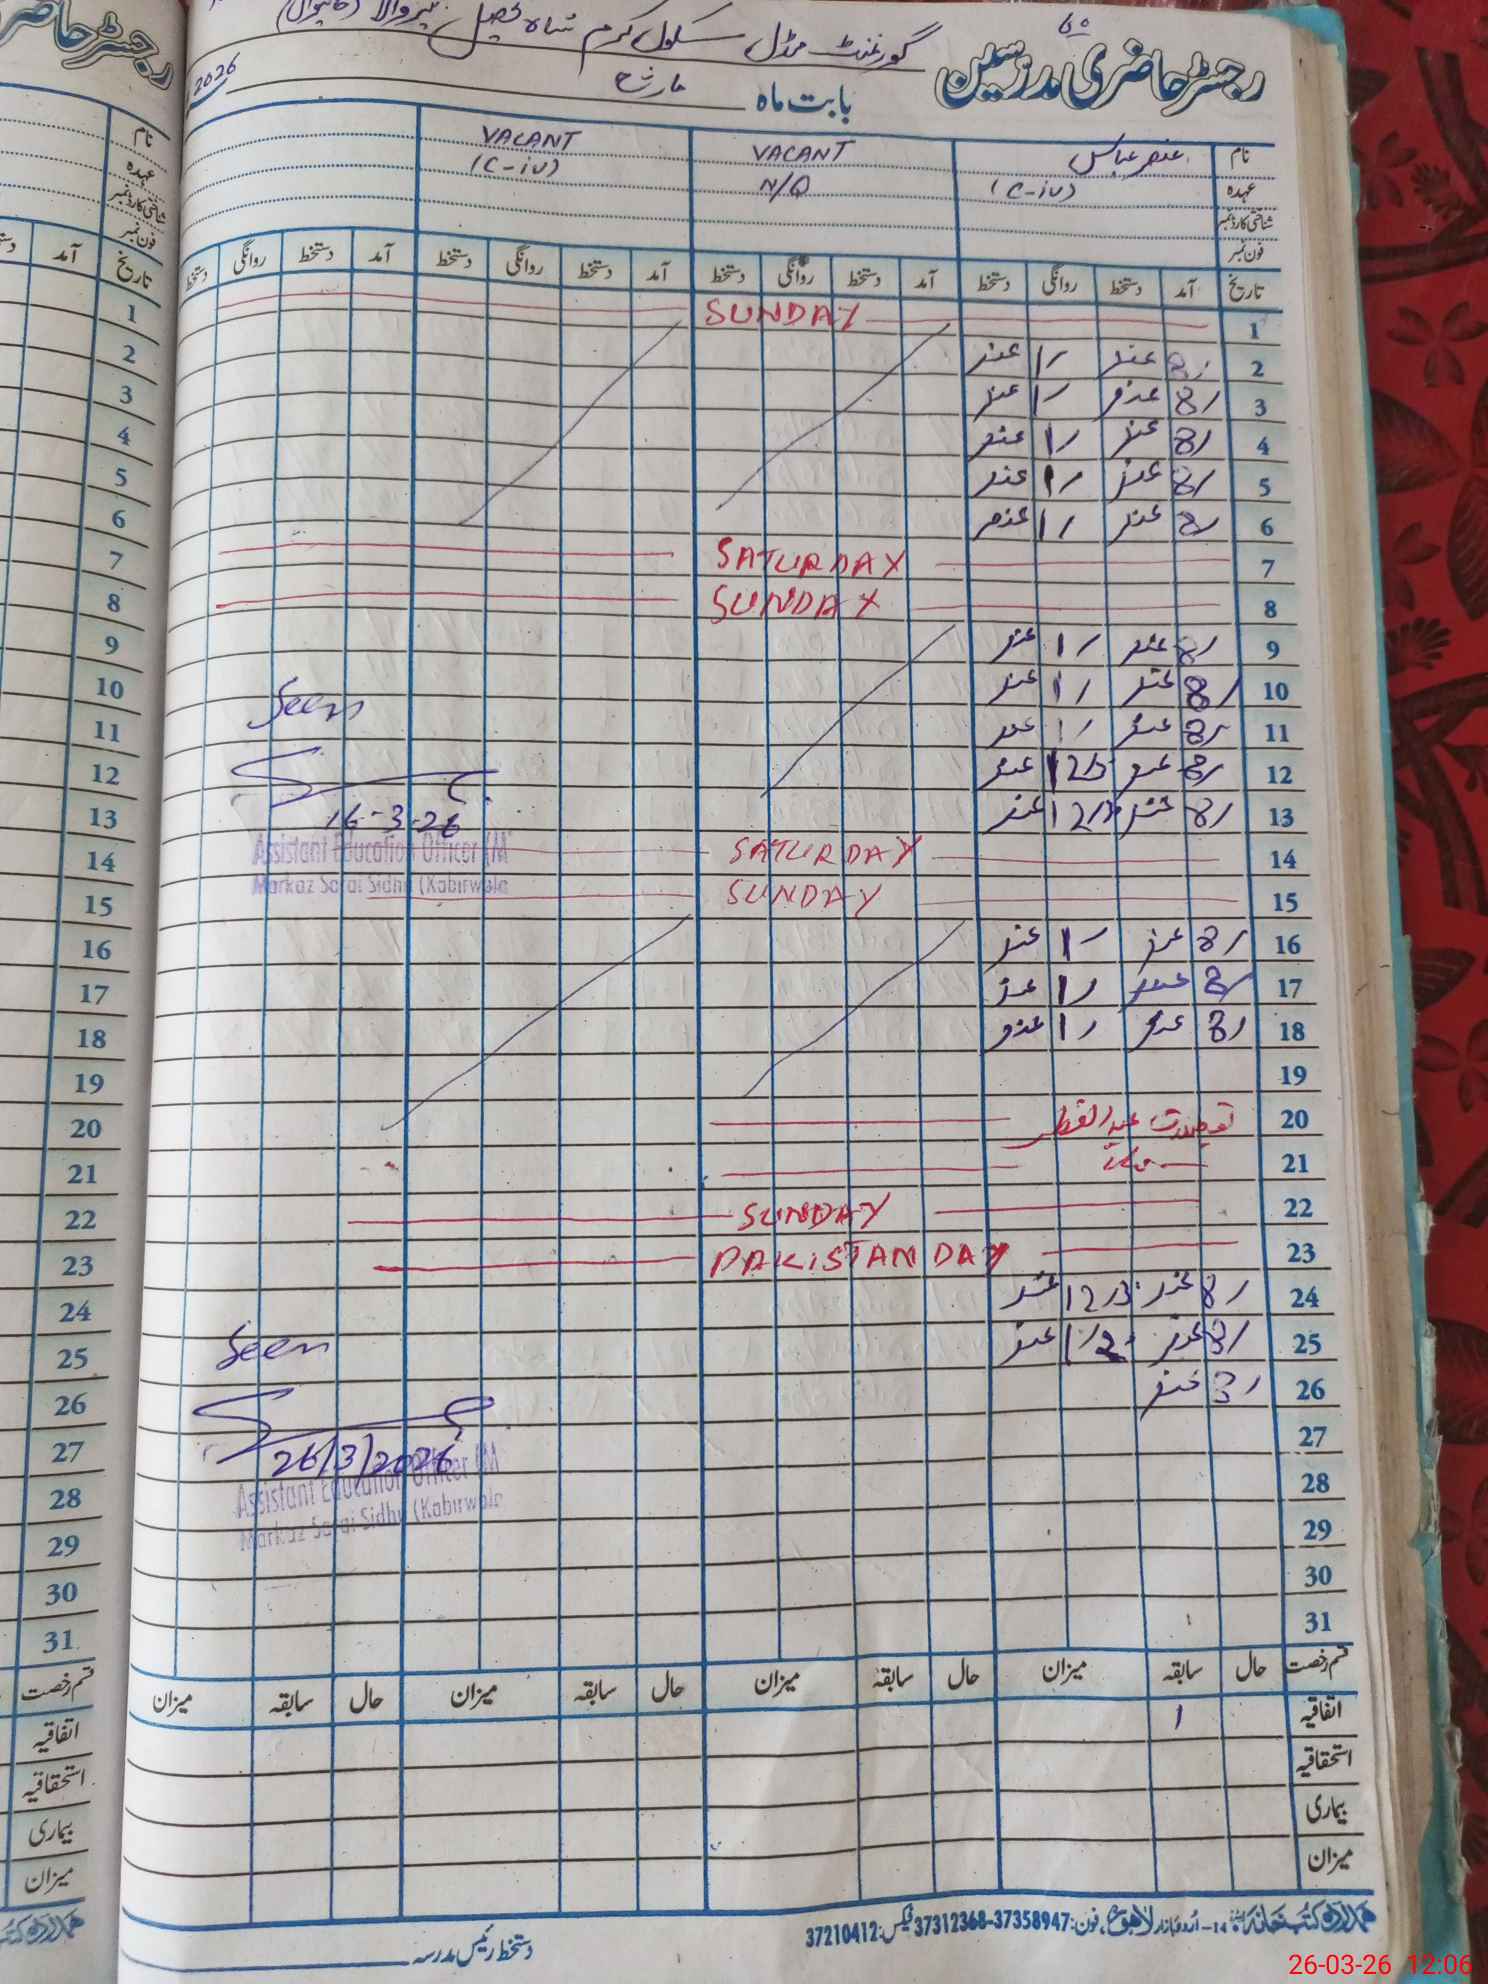 رجسٹر حاضری مدرسین
گورنمنٹ مڈل سکول کرم شاہ تحصیل کبیروالا (خانیوال)
بابت ماہ مارچ 2026
نام عنصر عباس VACANT VACANT
عہدہ (C-iv) N/Q (C-iv)
شناختی کارڈ نمبر
فون نمبر
تاریخ آمد دستخط روانگی دستخط آمد دستخط روانگی دستخط آمد دستخط روانگی دستخط آمد دستخط روانگی دستخط
1 SUNDAY
2 8/ عنصر 1/ عنصر
3 8/ عنصر 1/ عنصر
4 8/ عنصر 1/ عنصر
5 8/ عنصر 1/ عنصر
6 8/ عنصر 1/ عنصر
7 SATURDAY
8 SUNDAY
9 8/ عنصر 1/ عنصر
10 8/ عنصر 1/ عنصر
Seen
11 8/ عنصر 1/ عنصر
12 8/ عنصر 12/3 عنصر
13 8/ عنصر 12/3 عنصر
16-3-26
Assistant Education Officer (M
Markaz Sarai Sidhu (Kabirwala
14 SATURDAY
15 SUNDAY
16 8/ عنصر 1/ عنصر
17 8/ عنصر 1/ عنصر
18 8/ عنصر 1/ عنصر
19
20 تعطیلات عیدالفطر
21
22 SUNDAY
23 PAKISTAN DAY
24 8/ عنصر 12/3 عنصر
25 8/ عنصر 1/2 عنصر
Seen
26 8/ عنصر
27
26/3/2026
Assistant Education Officer (M
Markaz Sarai Sidhu (Kabirwala
28
29
30
31
قسم رخصت حال سابقہ میزان حال سابقہ میزان حال سابقہ میزان حال سابقہ میزان
اتفاقیہ 1
استحقاقیہ
بیماری
میزان
ہمدرد کتب خانہ 14- اردو بازار لاہور، فون: 37358947-37312368 فیکس: 37210412
دستخط رئیس مدرسہ
رجسٹر حاضر
نام
عہدہ
شناختی کارڈ نمبر
فون نمبر
تاریخ آمد
1
2
3
4
5
6
7
8
9
10
11
12
13
14
15
16
17
18
19
20
21
22
23
24
25
26
27
28
29
30
31
قسم رخصت
اتفاقیہ
استحقاقیہ
بیماری
میزان
26-03-26 12:06